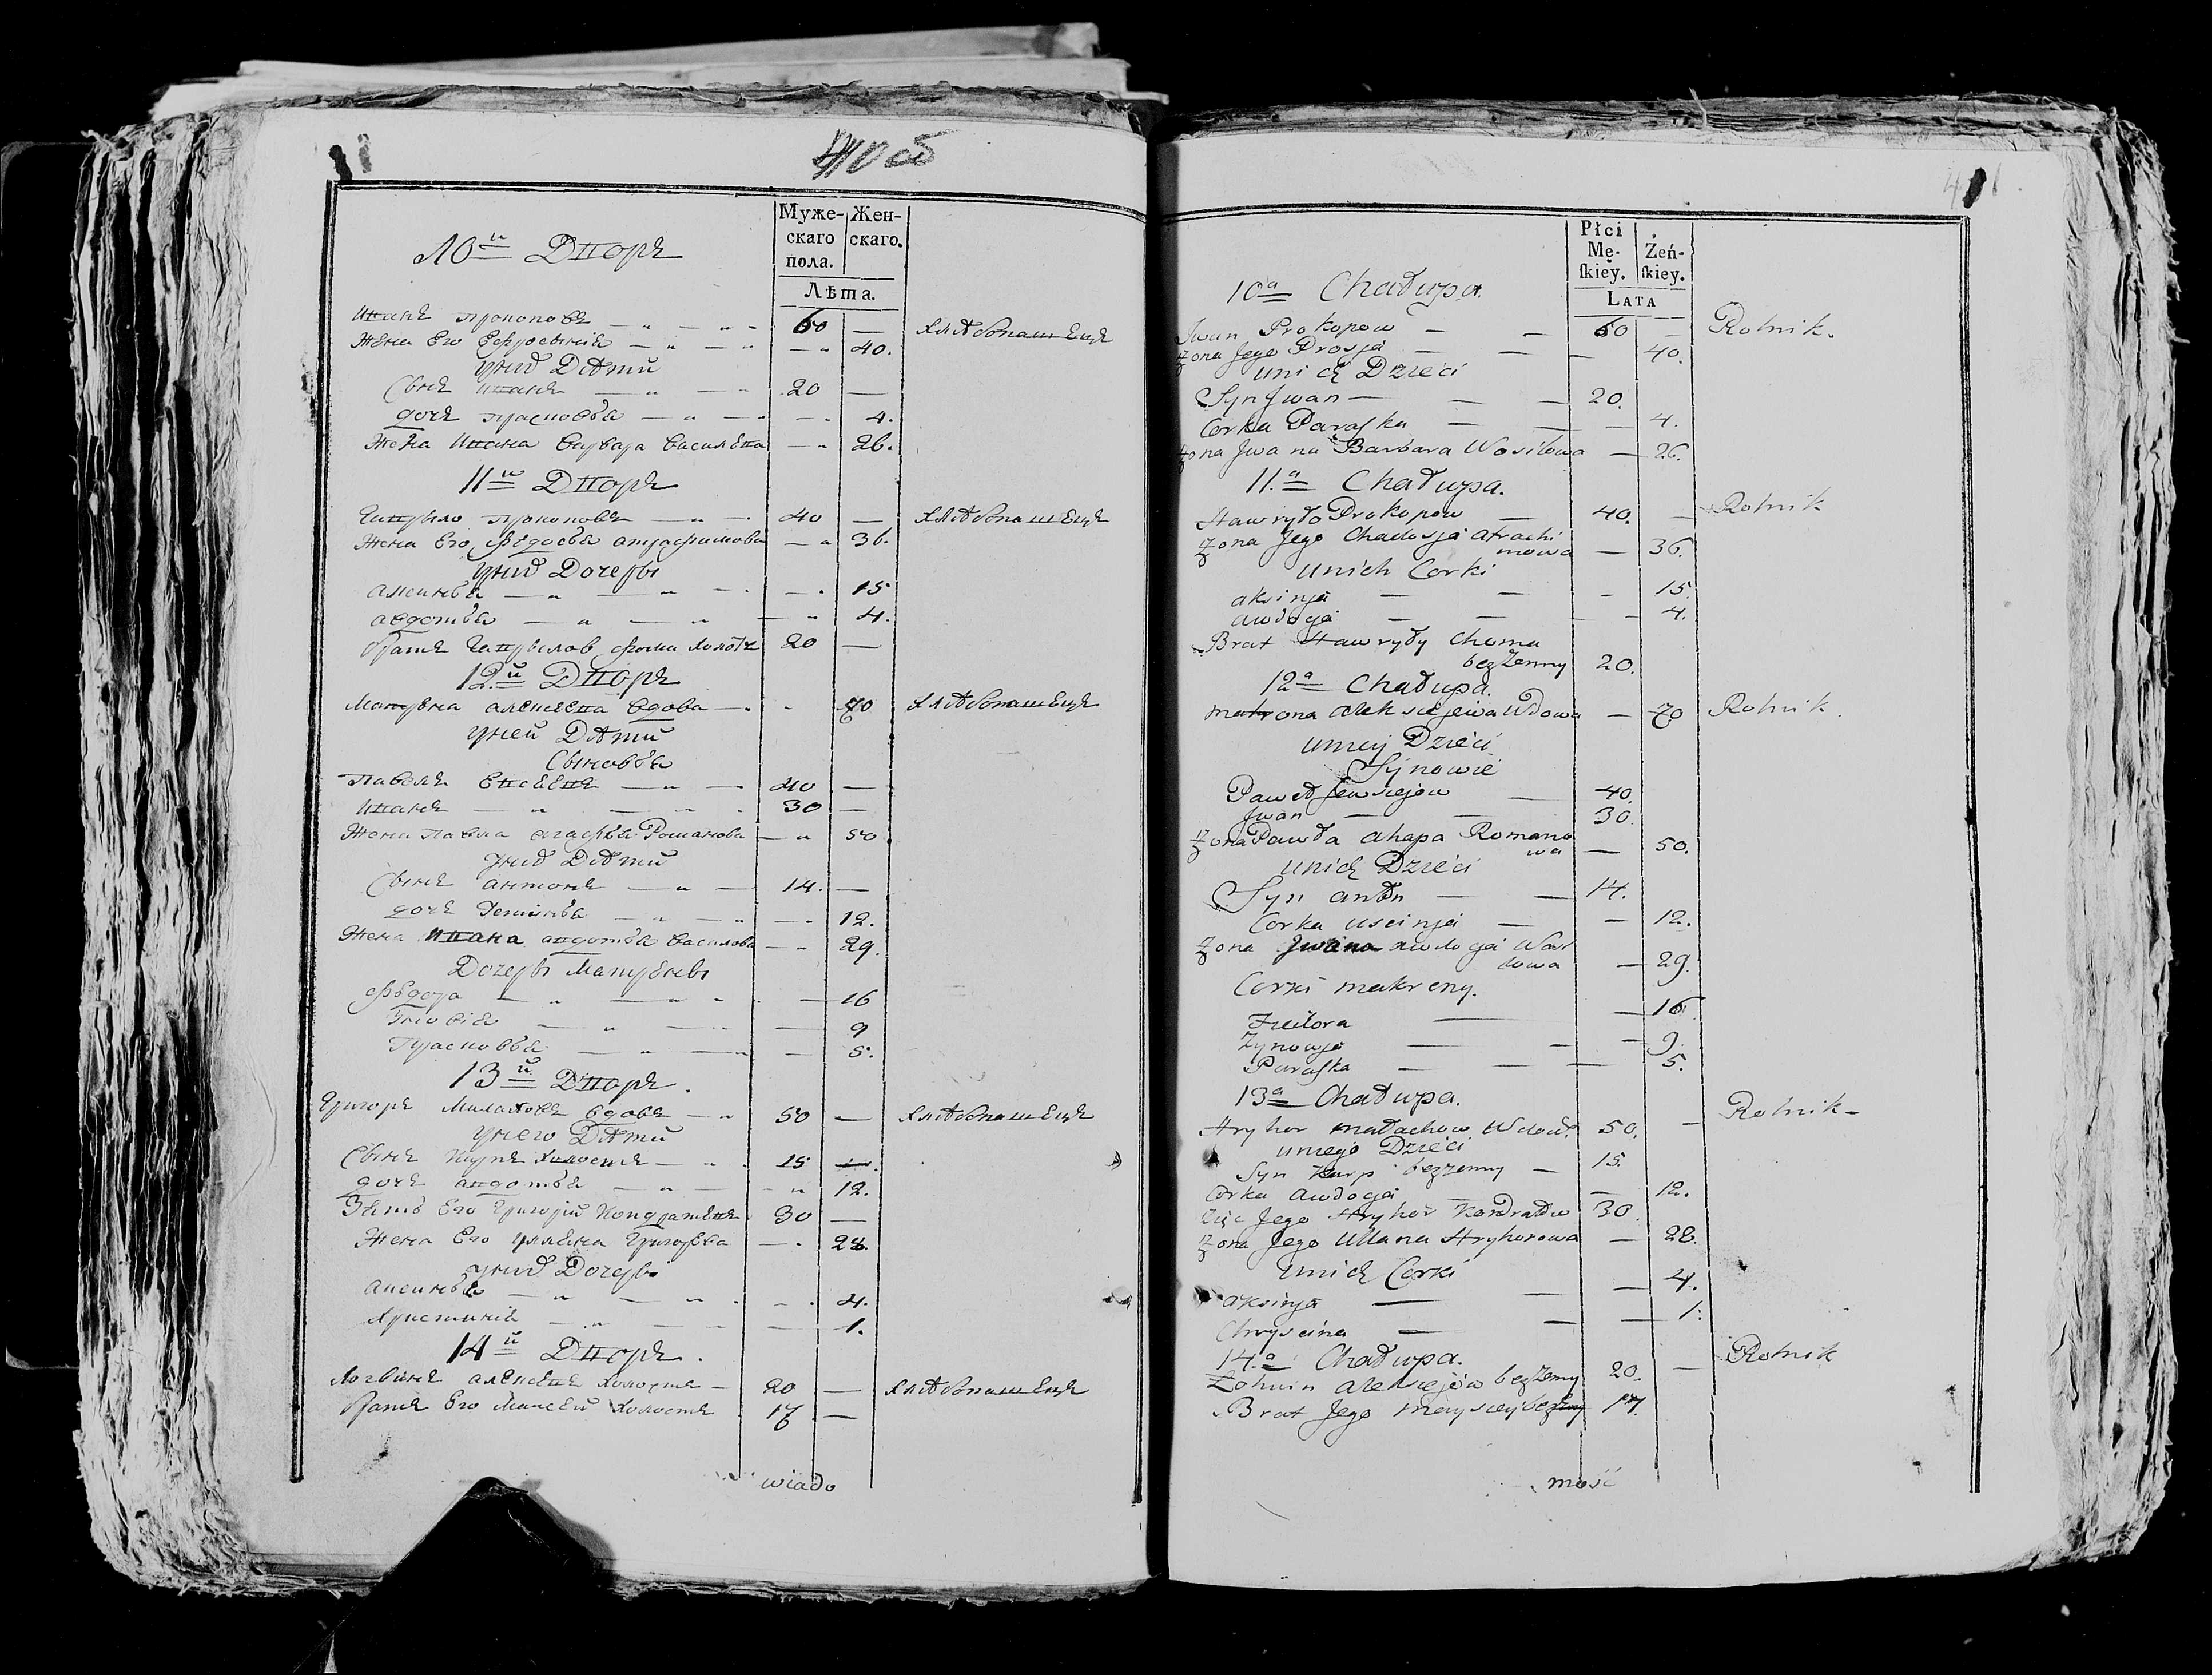 10й Дворъ
Муже-
скаго
пола.
Жен-
скаго.
Лѣта.
Иванъ Прокоповъ 60 — хлѣбопашецъ
Жена Его Ефросиния — 40.
у них Дѣти
Сынъ Иванъ 20 —
дочь Прасковья — 4.
Жена Ивана Варвара Василева — 26.
11й Дворъ
Гаврыло Прокоповъ 40 — хлѣбопашецъ
Жена Его Федосья — 36.
у них Дочеры
Аксинья — 15
авдотья — 4.
братъ Гаврылов фома холостъ 20 —
12й Дворъ
алексеева вдова — 70 хлѣбопашецъ
у ней Дѣти
Сыновья
Павелъ Евсеевъ 40 —
Иванъ 30 —
Жена Павла агафья Романова — 50
у них Дѣти
Сынъ антонъ 14. —
дочь — 12.
Жена Ивана авдотья Василова — 29.
Дочеры
Федора — 16
— 9
Прасковья — 5.
13й Дворъ.
Григоръ Малаховъ вдовъ 50 — хлѣбопашецъ
у него Дѣти
Сынъ Карпъ холостъ 15
дочь авдотья — 12.
Зять Его Григорий Кондратевъ 30 —
Жена Его ульяна Григорева — 28.
у них Дочеры
аксинья — 4.
Христиния — 1.
14й Дворъ.
Логвинъ алексевъ холостъ 20 — хлѣбопашецъ
братъ Его Моисей холостъ 17 —
wiado
Płci
Mę-
skiey.
Żeń-
skiey.
LATA
10a Chałupa.
Jwan Prokopow — — 60 — Rolnik.
Żona Jego Prosja — — — 40.
unich Dzieci
Syn Jwan — — — 20.
Corka Paraska — — — 4.
Żona Jwana Barbara Wasilowa — 26.
11.a Chałupa.
Hawryło Prokopow — 40. — Rolnik
Żona Jego Chadosja atrachi
mowa — 36.
unich Corki
aksinja — — — 15.
awdoja — — — 4.
Brat Hawryły Choma
bezżenny 20.
12a Chałupa.
Makrona Aleksiejewa Wdowa — 70 Rolnik.
uniey Dzieci
Synowie
Paweł Jewsiejow — 40.
Jwan — — 30.
Żona Pawła ahapa Romano
wa — 50.
unich Dzieci
Syn anton — — 14.
Corka uscinja — — 12.
Żona Jwana awdogja Wasi
lowa — 29.
Corki makreny.
— — 16.
Zynowja — — — 9.
Paraska — — — 5.
13a Chałupa.
Hryhor małachow Wdow. 50. — Rolnik
uniego Dzieci
Syn Karp bezżenny — 15.
Corka awdogja — 12.
Zięc Jego Hryhor Kondratow 30.
Żona Jego Ullana Hryhorowa — 28.
unich Corki
aksinja — — — 4.
Chryscina — — — 1.
14.a Chałupa.
Łohwin aleksiejow bezżenny 20. — Rolnik
Brat Jego 17.
mość